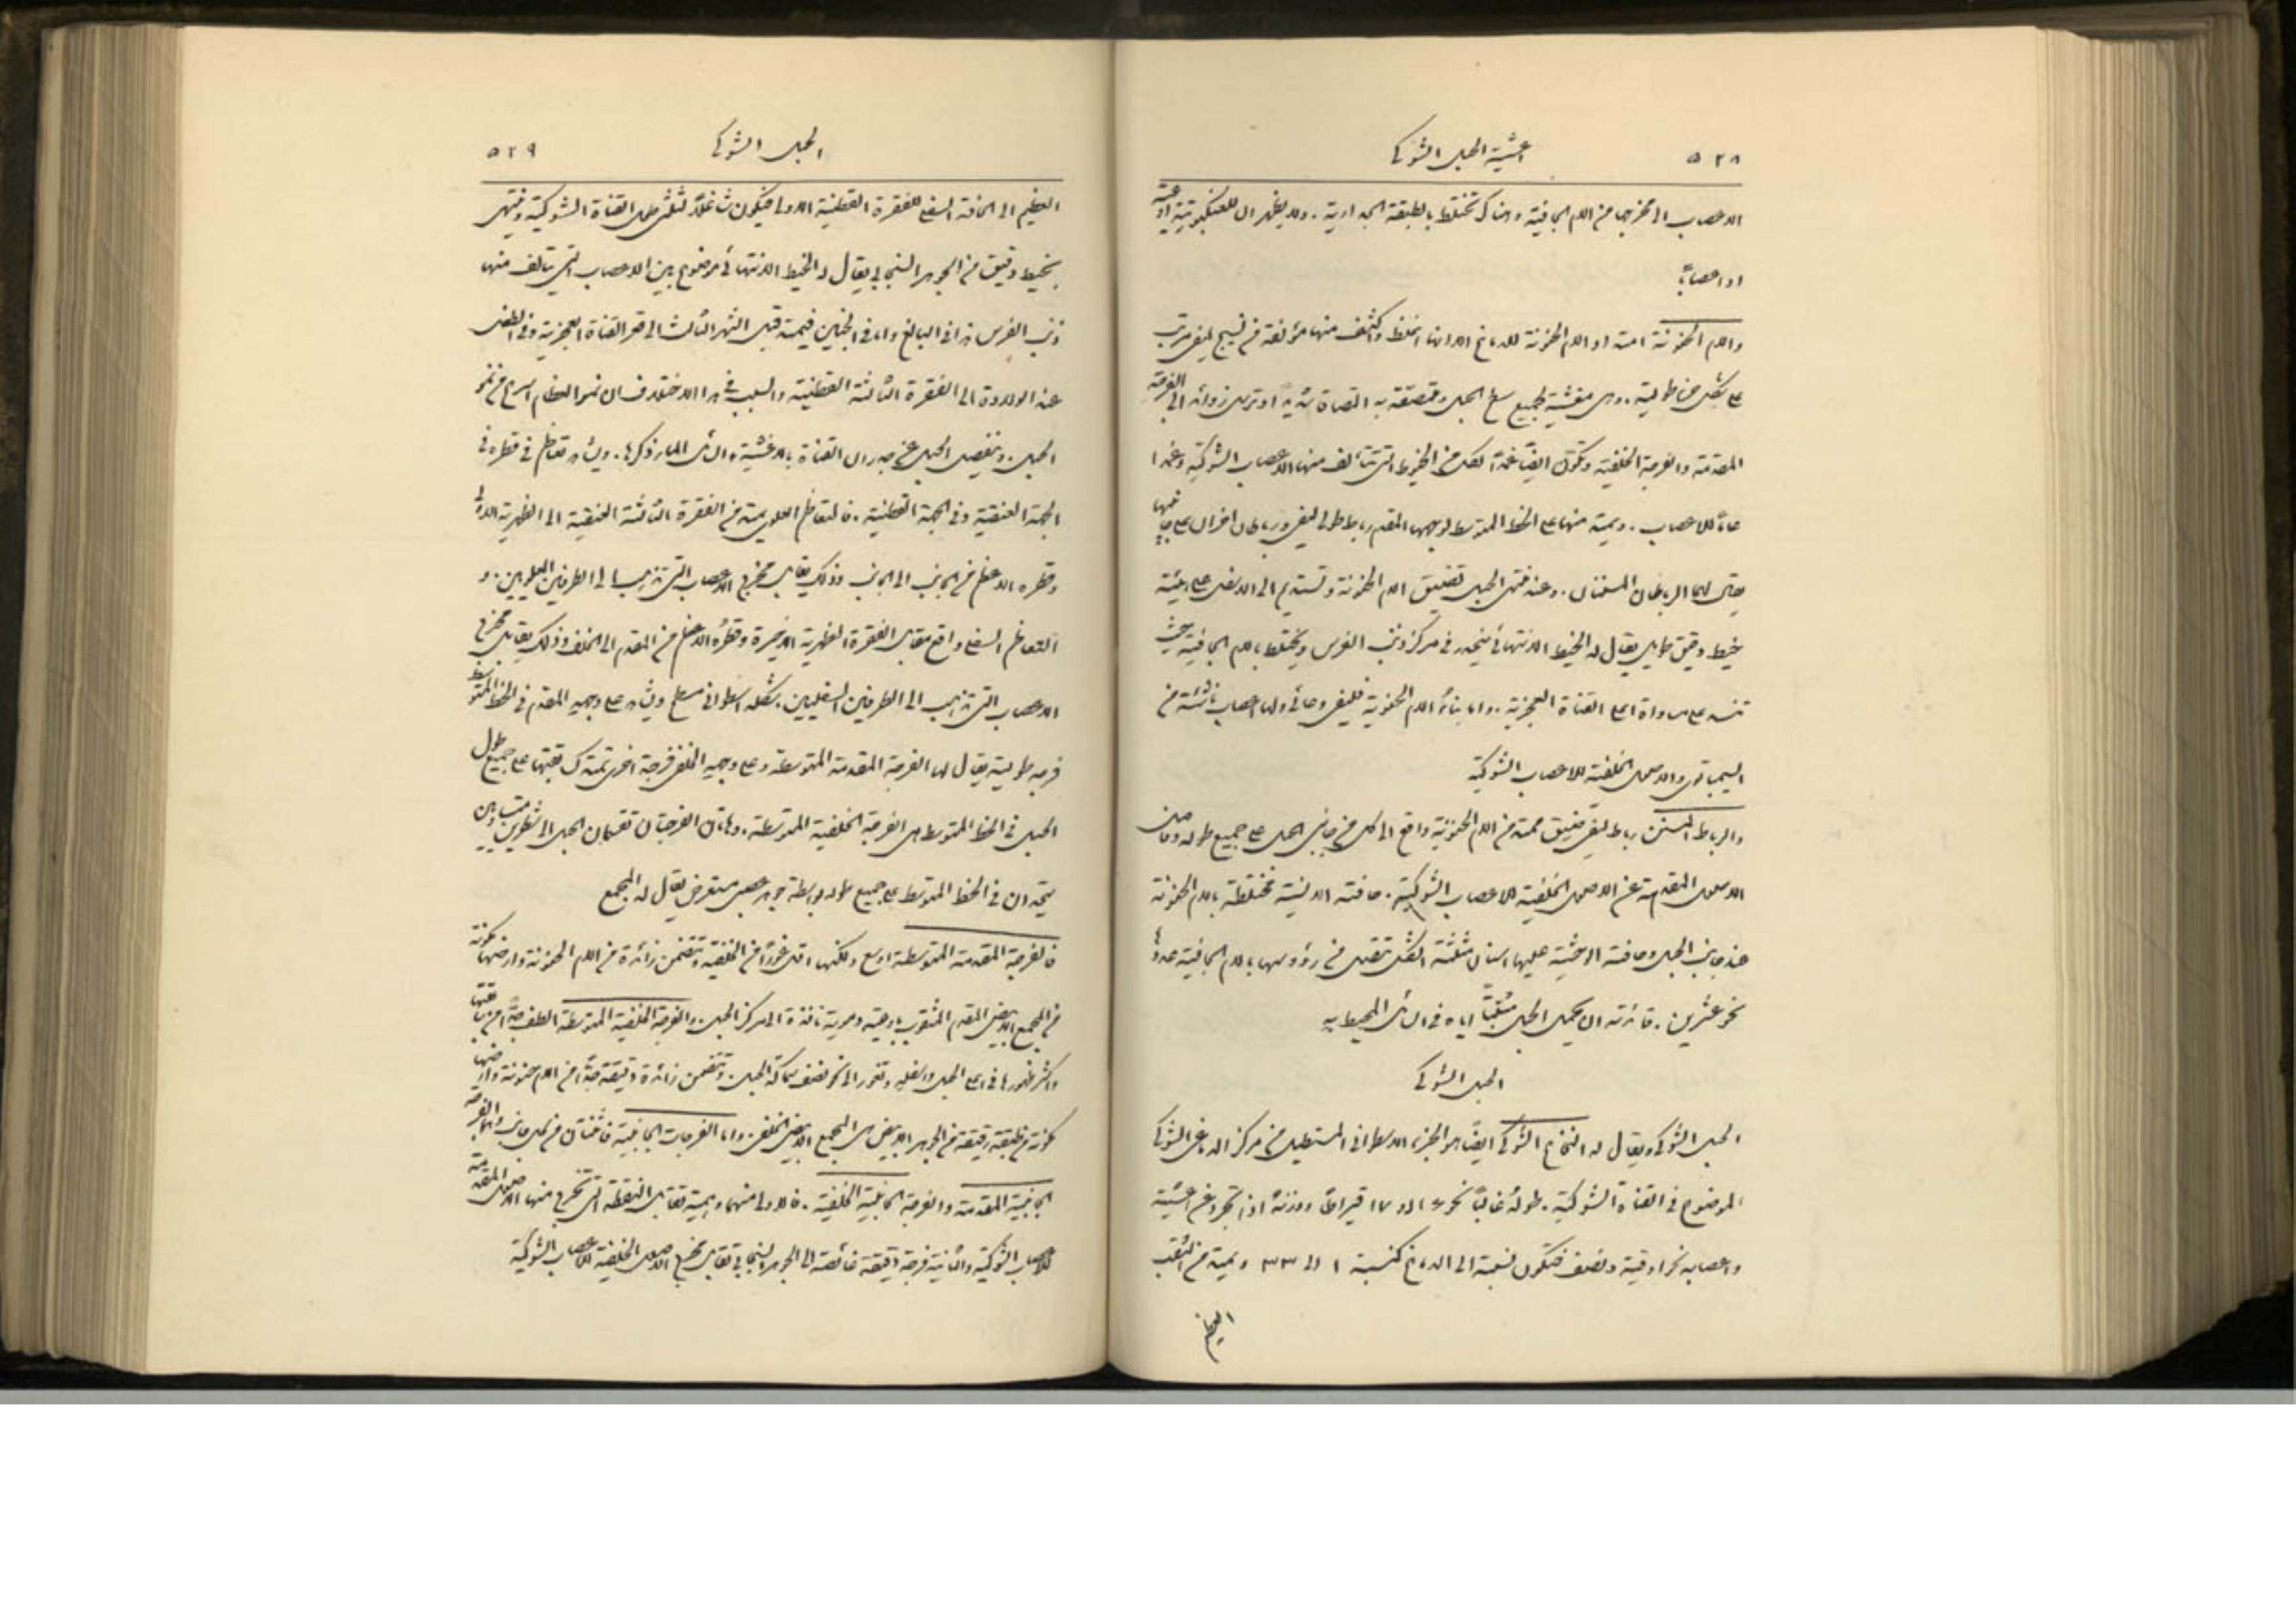 ٥٢٨
اغشية الحبل الشوكي
الاعصاب الى مخرجها من الام الجافية وهناك تختلط بالطبقة الجدارية. ولا يظهر ان للعنكبوتية اوعية
او اعصابًا
والام الحنونة امتداد الام الحنونة للدماغ الا انها اغلظ واكثف منها مؤلفة من نسيج ليفي مرتب
على شكل حزم طولية. وهي مغشية لجميع سطح الحبل وملتصقة به التصاقًا شديدًا وترسل زوائد الى الفرجة
المقدمة والفرجة الخلفية وتكوّن ايضًا غمدًا لكل من الخيوط التي تتألف منها الاعصاب الشوكية وغمدًا
عامًّا للاعصاب. ويمتد منها على الخط المتوسط لوجهها المقدم رباط طولي ليفي ورباطان اخران على جانبيها
يقال لهما الرباطان المسننان. وعند منتهى الحبل تضيق الام الحنونة وتستديم الى الاسفل على هيئة
خيط دقيق طويل يقال له الخيط الانتهائي ينحدر في مركز ذنب الفرس ويختلط بالام الجافية حيث
تنسد على مساواة اعلى القناة العجزية. واما بناء الام الحنونية فليفي وعائي ولها اعصاب ناشئة من
السيمباثوي والاصول الخلفية للاعصاب الشوكية
والرباط المسنن رباط ليفي ضيق ممتد من الام الحنونية واقع الى كل من جانبي الحبل على جميع طوله وفاصل
الاصول المقدمة عن الاصول الخلفية للاعصاب الشوكية. حافته الانسية مختلطة بالام الحنونة
عند جانب الحبل وحافته الوحشية عليها اسنان مثلثة الشكل تتصل من رؤوسها بالام الجافية عددها
نحو عشرين. فائدته ان يحمل الحبل مثبتًا اياه في السائل المحيط به
الحبل الشوكي
الحبل الشوكي ويقال له النخاع الشوكي ايضًا هو الجزء الاسطواني المستطيل من مركز الدماغي الشوكي
الموضوع في القناة الشوكية. طوله غالبًا نحو ١٦ او ١٧ قيراطًا ووزنه اذا تجرد عن اغشيته
واعصابه نحو اوقية ونصف فتكون نسبته الى الدماغ كنسبة ١ الى ٣٣ ويمتد من الثقب
العظيم
٥٢٩
الحبل الشوكي
العظيم الى الحافة السفلى للفقرة القطنية الاولى فيكون شاغلًا لثلثي طول القناة الشوكية وينتهي
بخيط دقيق من الجوهر السنجابي يقال له الخيط الانتهائي موضوع بين الاعصاب التي يتألف منها
ذنب الفرس هذا في البالغ واما في الجنين فيمتد قبل الشهر الثالث الى قعر القناة العجزية وفي الطفل
عند الولادة الى الفقرة الثالثة القطنية والسبب في هذا الاختلاف ان نمو العظام اسرع من نمو
الحبل. وينفصل الحبل عن جدران القناة بالاغشية والسائل المار ذكرها. ويشاهد تعاظم في قطره في
الجهة العنقية وفي الجهة القطنية. فالتعاظم العلوي يمتد من الفقرة الثالثة العنقية الى الظهرية الاولى
وقطره الاعظم من الجانب الى الجانب وذلك يقابل مخرج الاعصاب التي تذهب الى الطرفين العلويين. و
التعاظم السفلي واقع مقابل الفقرة الظهرية الاخيرة وقطره الاعظم من المقدم الى الخلف وذلك يقابل مخرج
الاعصاب التي تذهب الى الطرفين السفليين. شكله اسطواني مسطح ويشاهد على وجهه المقدم في الخط المتوسط
فرجة طولية يقال لها الفرجة المقدمة المتوسطة وعلى وجهه الخلفي فرجة اخرى تمتد كسابقتها على جميع طول
الحبل في الخط المتوسط هي الفرجة الخلفية المتوسطة. وهاتان الفرجتان تقسمان الحبل الى شطرين متساويين
يتحدان في الخط المتوسط على جميع طوله بواسطة جوهر عصبي مستعرض يقال له المجمع
فالفرجة المقدمة المتوسطة اوسع ولكنها اقل غورًا من الخلفية وتتضمن زائدة من الام الحنونة وارضها مكونة
من المجمع الابيض المقدم المثقوب باوعية دموية نافذة الى مركز الحبل. والفرجة الخلفية المتوسطة الطف جدًّا من سابقتها
واكثر ظهورها في اعلى الحبل واسفله وتغور الى نحو نصف سماكة الحبل. وتتضمن زائدة دقيقة جدًّا من الام حنونة وارضها
مكونة من طبقة رقيقة من الجوهر الابيض هي المجمع الابيض الخلفي. واما الفرجات الجانبية فاثنتان من كل جانب وهما الفرجة
الجانبية المقدمة والفرجة الجانبية الخلفية. فالاولى منهما وهمية تقابل النقطة التي تخرج منها الاصول المقدمة
للاعصاب الشوكية والثانية فرجة دقيقة غائصة الى الجوهر السنجابي تقابل مخرج الاصول الخلفية للاعصاب الشوكية